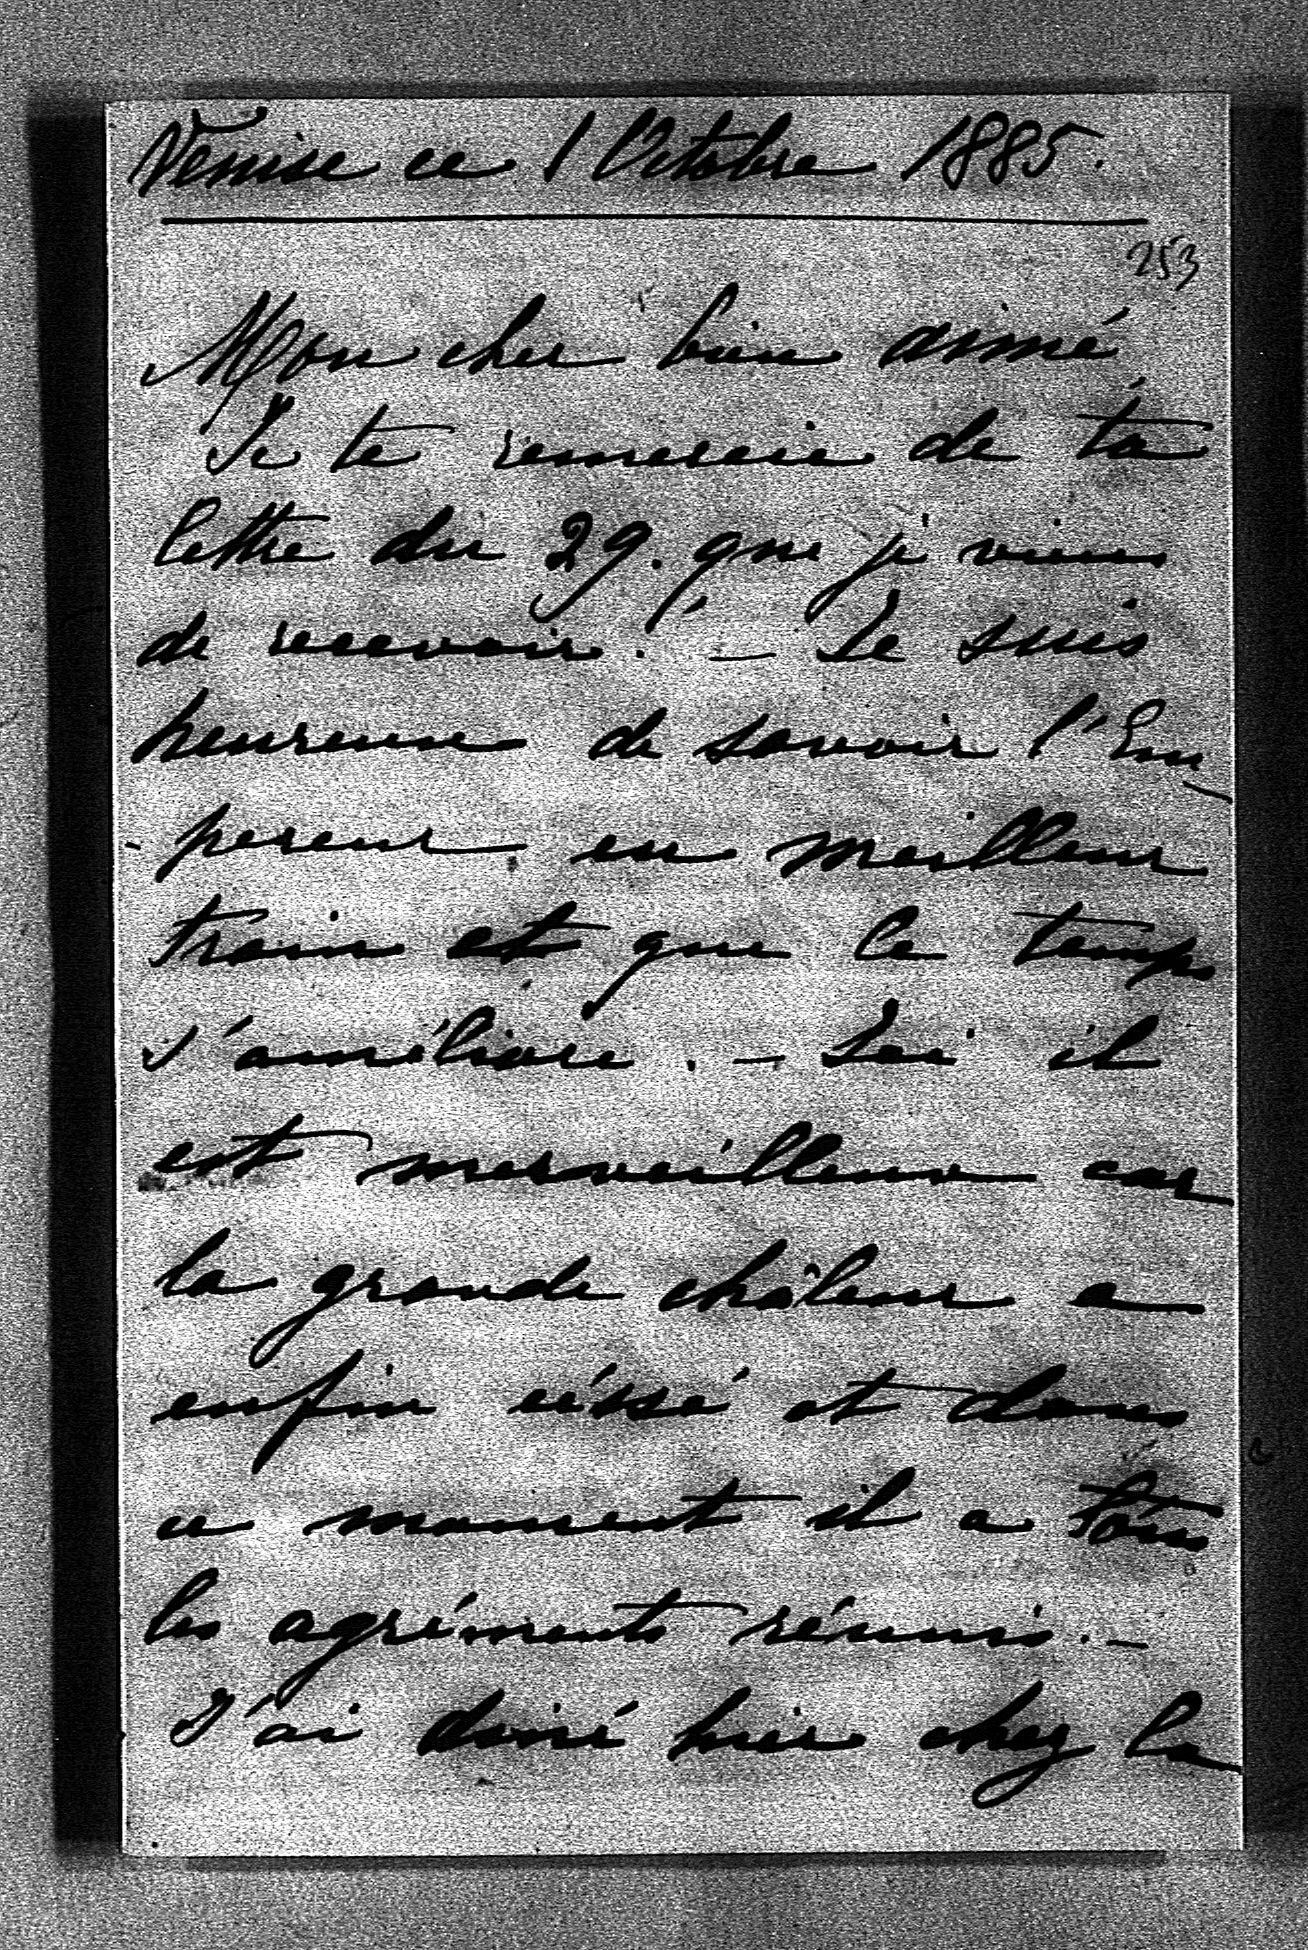 Venise ce 1 Octobre 1885.
253
Mon cher bien aimé
Je te remercie de ta
lettre du 29. que je viens
de recevoir! – Je suis
heureuse de savoir l'Em
- pereur en meilleur
train et que le temps
s'améliore. – Ici il
est merveilleux car
la grande châleur a
enfin céssé et dans
ce moment il a tous
les agréments réunis. –
J'ai diné hier chez la